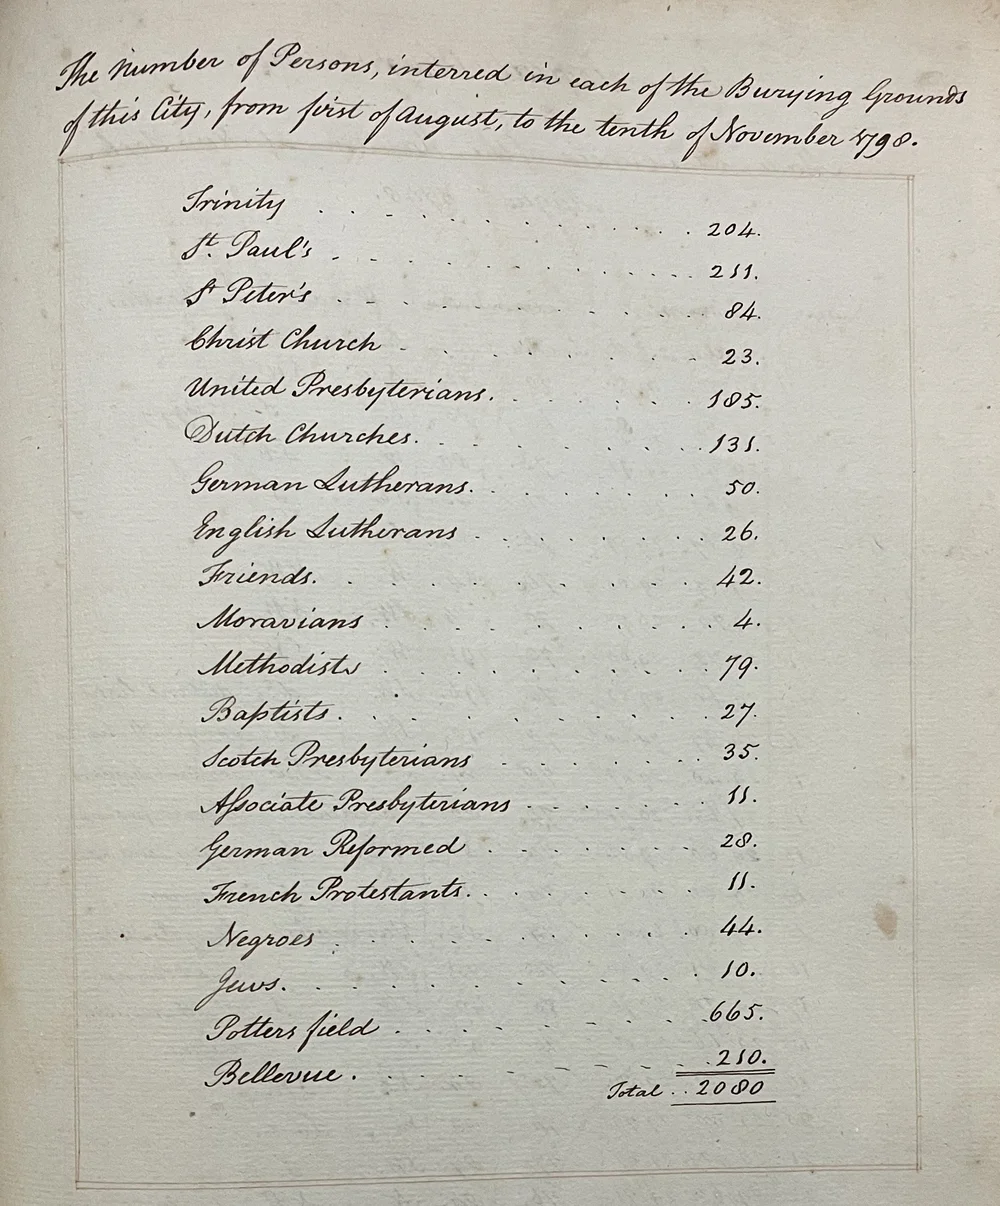 The Number of Persons, interred in each of the Burying Grounds
of this City, from first of August, to the tenth of November 1798.
Trinity . . . . . . . . . . . . 204.
St. Paul's . . . . . . . . . . . . 211.
St Peter's . . . . . . . . . . 84.
Christ Church . . . . . . . . 23.
United Presbyterians. . . . . . . 185.
Dutch Churches. . . . . . . . . 131.
German Lutherans. . . . . . . . 50.
English Lutherans . . . . . . . . 26.
Friends. . . . . . . . . . 42.
Moravians . . . . . . . . . 4.
Methodists . . . . . . . . . 79.
Baptists. . . . . . . . . . 27.
Scotch Presbyterians . . . . . . . 35.
Associate Presbyterians . . . . . . 11.
German Reformed . . . . . . . 28.
French Protestants. . . . . . . . 11.
Negroes . . . . . . . . . . 44.
Jews. . . . . . . . . . . 10.
Potters field . . . . . . . . . 665.
Bellevue. . . . . . . . . . 210.
Total . . 2080